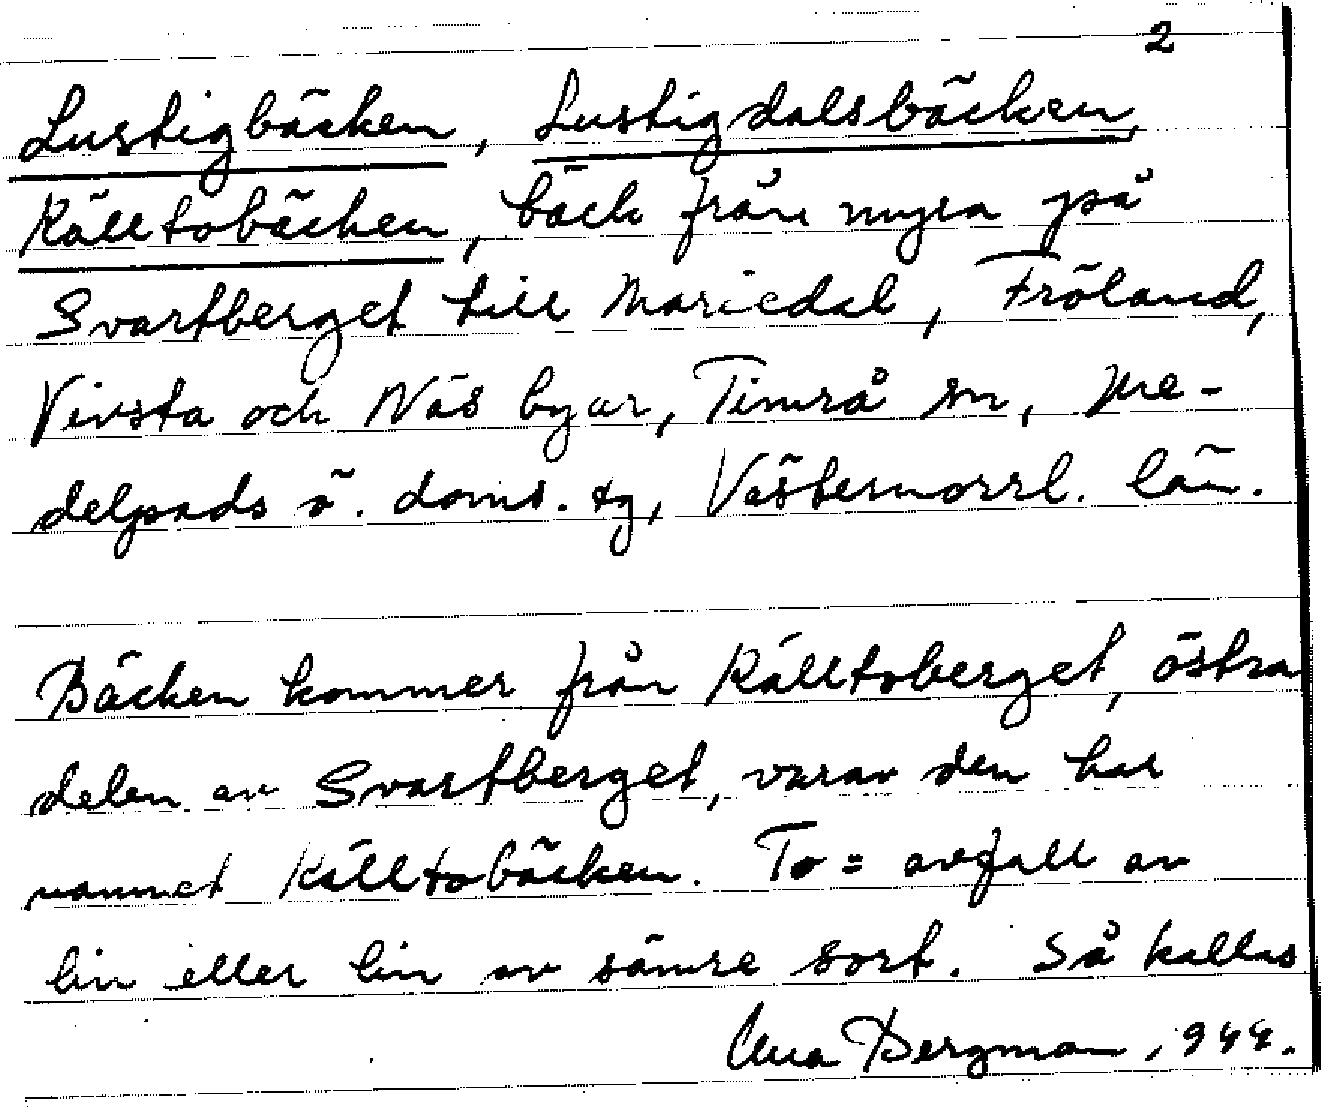 2
Lustigbäcken, Lustigdalsbäcken,
Källtobäcken, bäck från myra på
Svartberget till Mariedal, Fröland,
Vivsta och Näs byar, Timrå sn, Me-
delpads ö. doms. tg, Västernorrl. län.
Bäcken kommer från Källtoberget, östra
delen av Svartberget, varav den har
namnet Källtobäcken. To = avfall av
lin eller lin av sämre sort. Så kallas
Bergman, 1944.